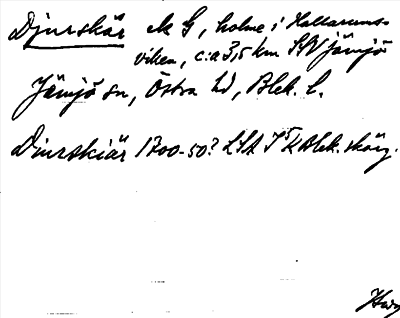 Djurskär ek G, holme i Hallarums-
viken, c:a 3,5 km SSV Jämjö
Jämjö sn, Östra hd, Blek. l.
Djurskiär 1700-50? LSA Blek. skärg.